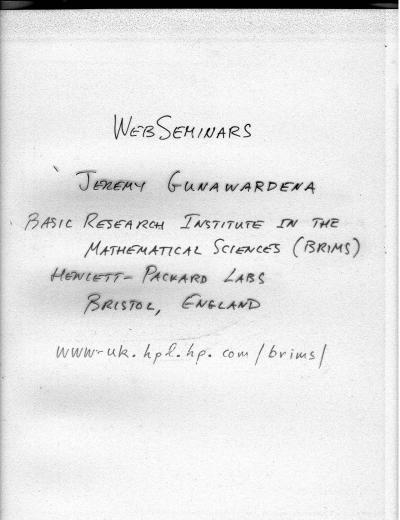 WEBSEMINARS
JEREMY GUNAWARDENA
BASIC RESEARCH INSTITUTE IN THE
MATHEMATICAL SCIENCES (BRIMS)
HEWLETT-PACKARD LABS
BRISTOL, ENGLAND
www-uk.hpl.hp.com/brims/